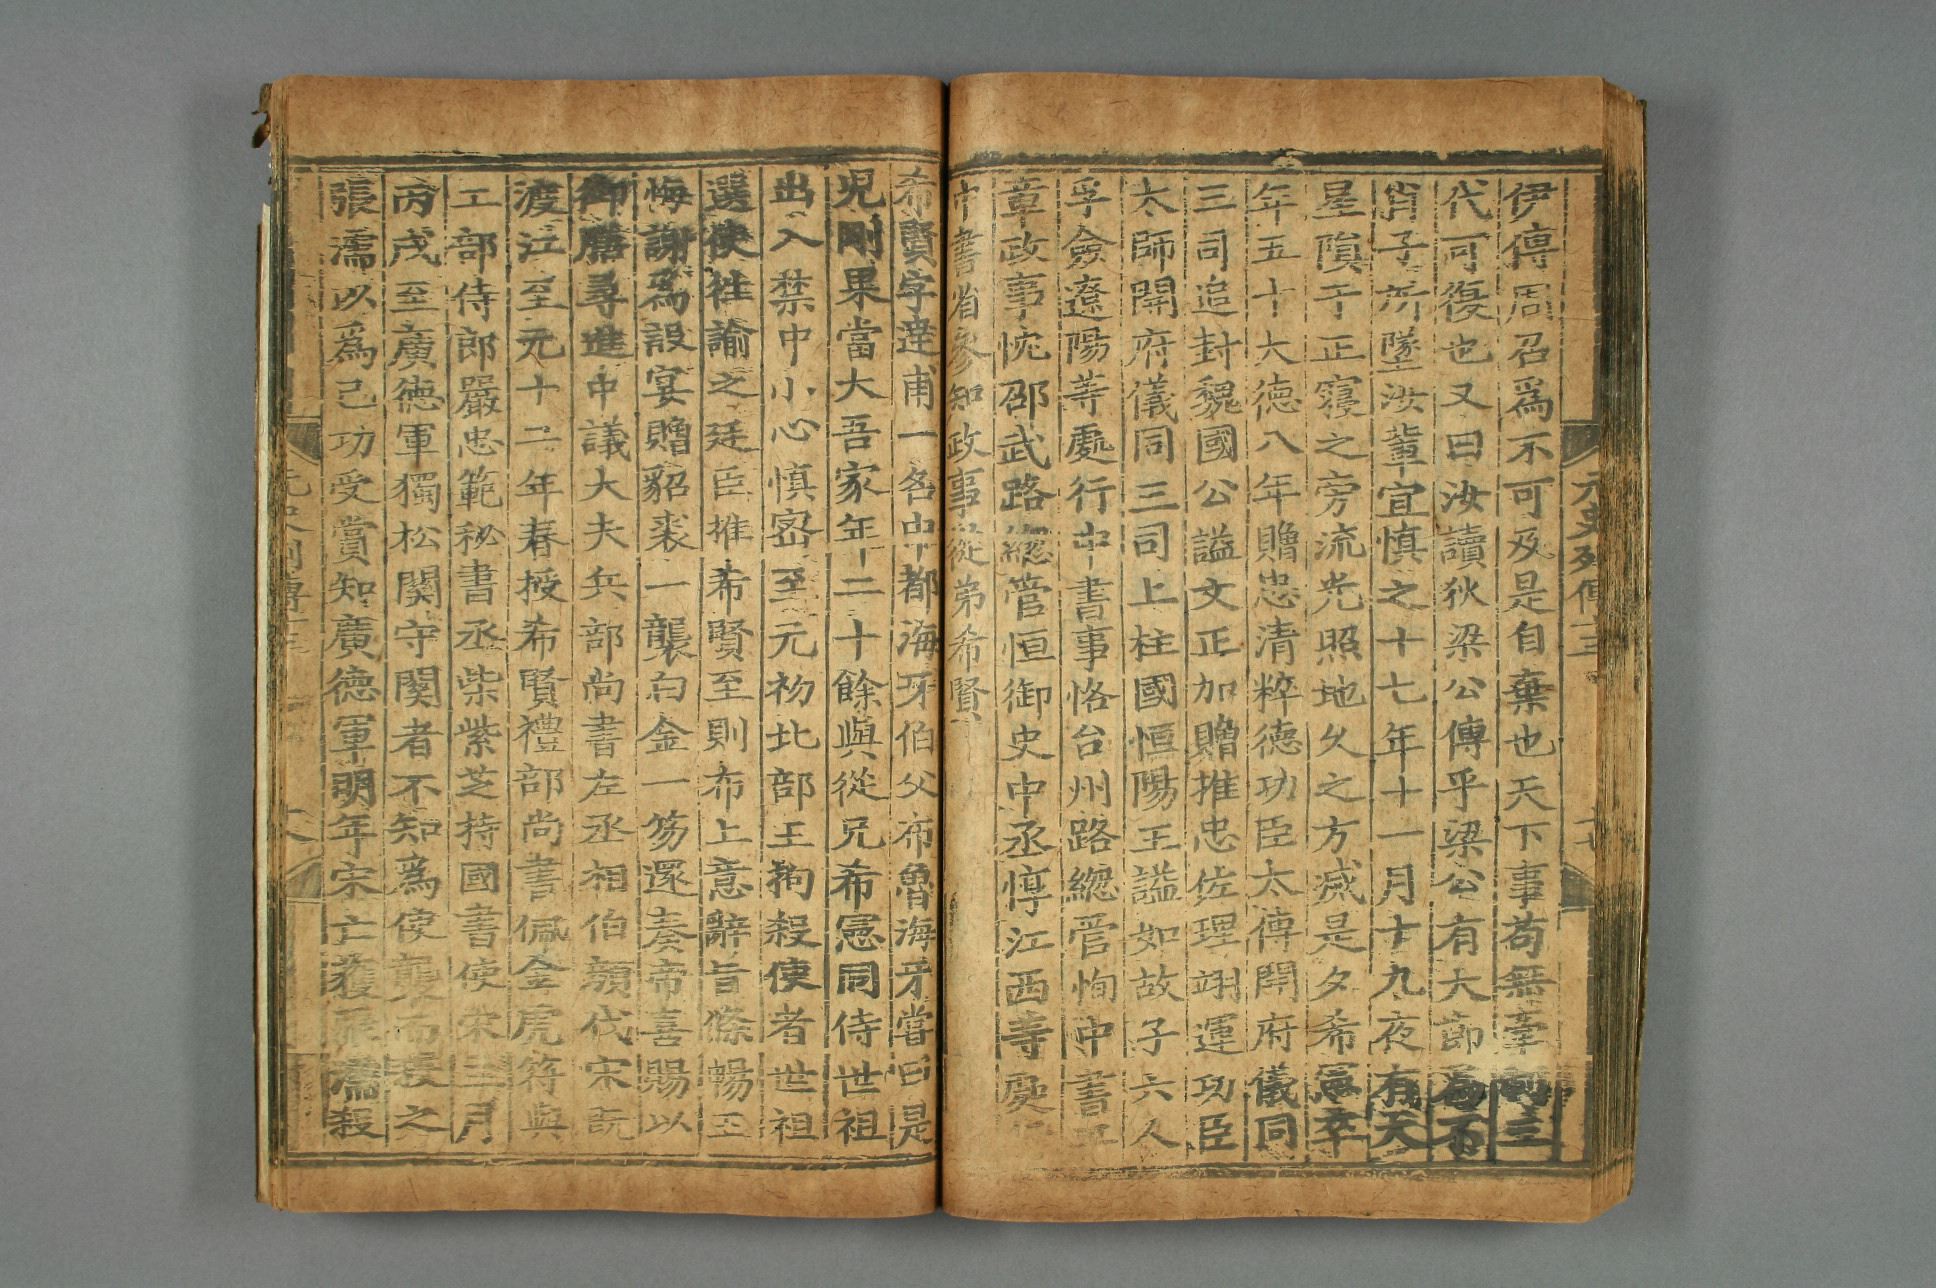 元史列傳十三
十七
伊傳周召爲不可及是自棄也天下事苟無牽三
代可復也又曰汝讀狄梁公傳乎梁公有大節爲不
肖子所墜汝輩宜慎之十七年十一月十九夜有天
星隕于正寢之旁流光照地久之方滅是夕希憲卒
年五十大德八年贈忠清粹德功臣太傳開府儀同
三司追封魏國公謚文正加贈推忠佐理翊運功臣
太師開府儀同三司上柱國恒陽王謚如故子六人
孚僉遼陽等處行中書事恪台州路總管恂中書平
章政事忱邵武路總管恒御史中丞惇江西等處
中書省參知政事從弟希賢
希賢字達甫一名中都海牙伯父布魯海牙嘗曰是
兒剛果當大吾家年二十餘與從兄希憲同侍世祖
出入禁中小心慎密至元初北部王拘殺使者世祖
選使往諭之廷臣推希賢至則布上意辭旨條暢王
悔謝爲設宴贈貂裘一襲白金一笏還奏帝喜賜以
御膳尋進中議大夫兵部尚書左丞相伯顏伐宋既
渡江至元十二年春授希賢禮部尚書佩金虎符與
工部侍郎嚴忠範秘書丞柴紫芝持國書使宋三月
丙戌至廣德軍獨松關守關者不知爲使襲而殺之
張濡以爲己功受賞知廣德軍明年宋亡獲張濡殺
元史列傳十三
十八